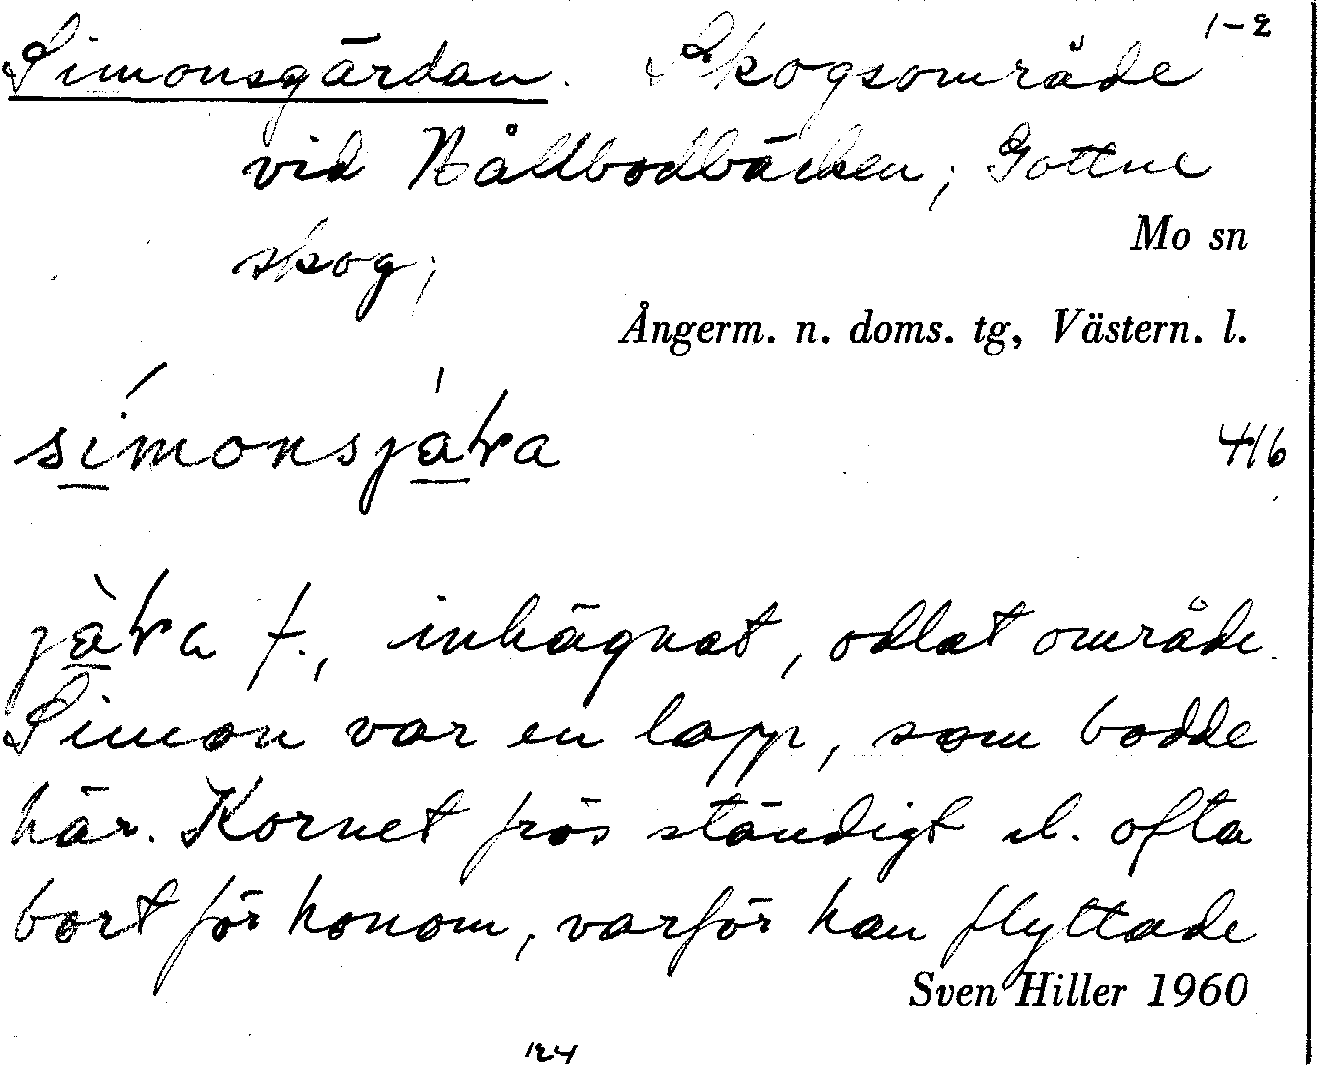 1-2
Simonsgärdan. Skogsområde
vid Nållbodbäcken; Gottne
skog;
Mo sn
Ångerm. n. doms. tg, Västern. l.
416
inhägnat, odlat område.
Simon var en lapp, som bodde
här. Kornet frös ständigt el. ofta
bort för honom, varför han flyttade
Sven Hiller 1960
124